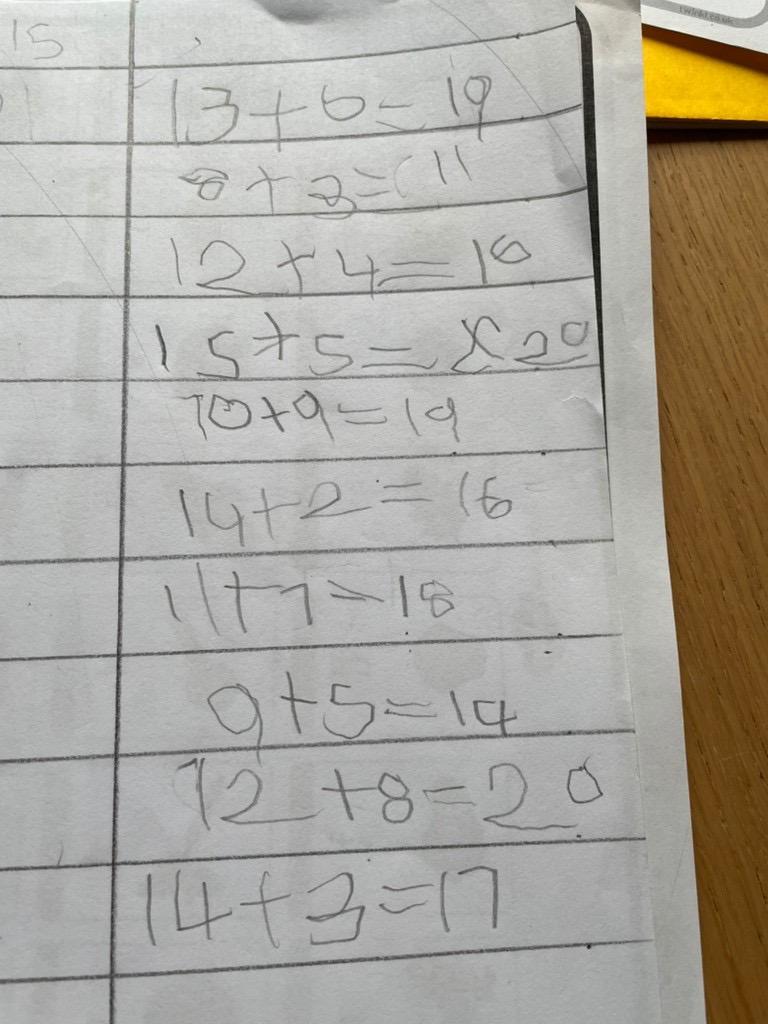 twinkl.co.uk
15
13+6=19
8+3=11
12+4=16
15+5=20
10+9=19
14+2=16
11+7=18
9+5=14
12+8=20
14+3=17